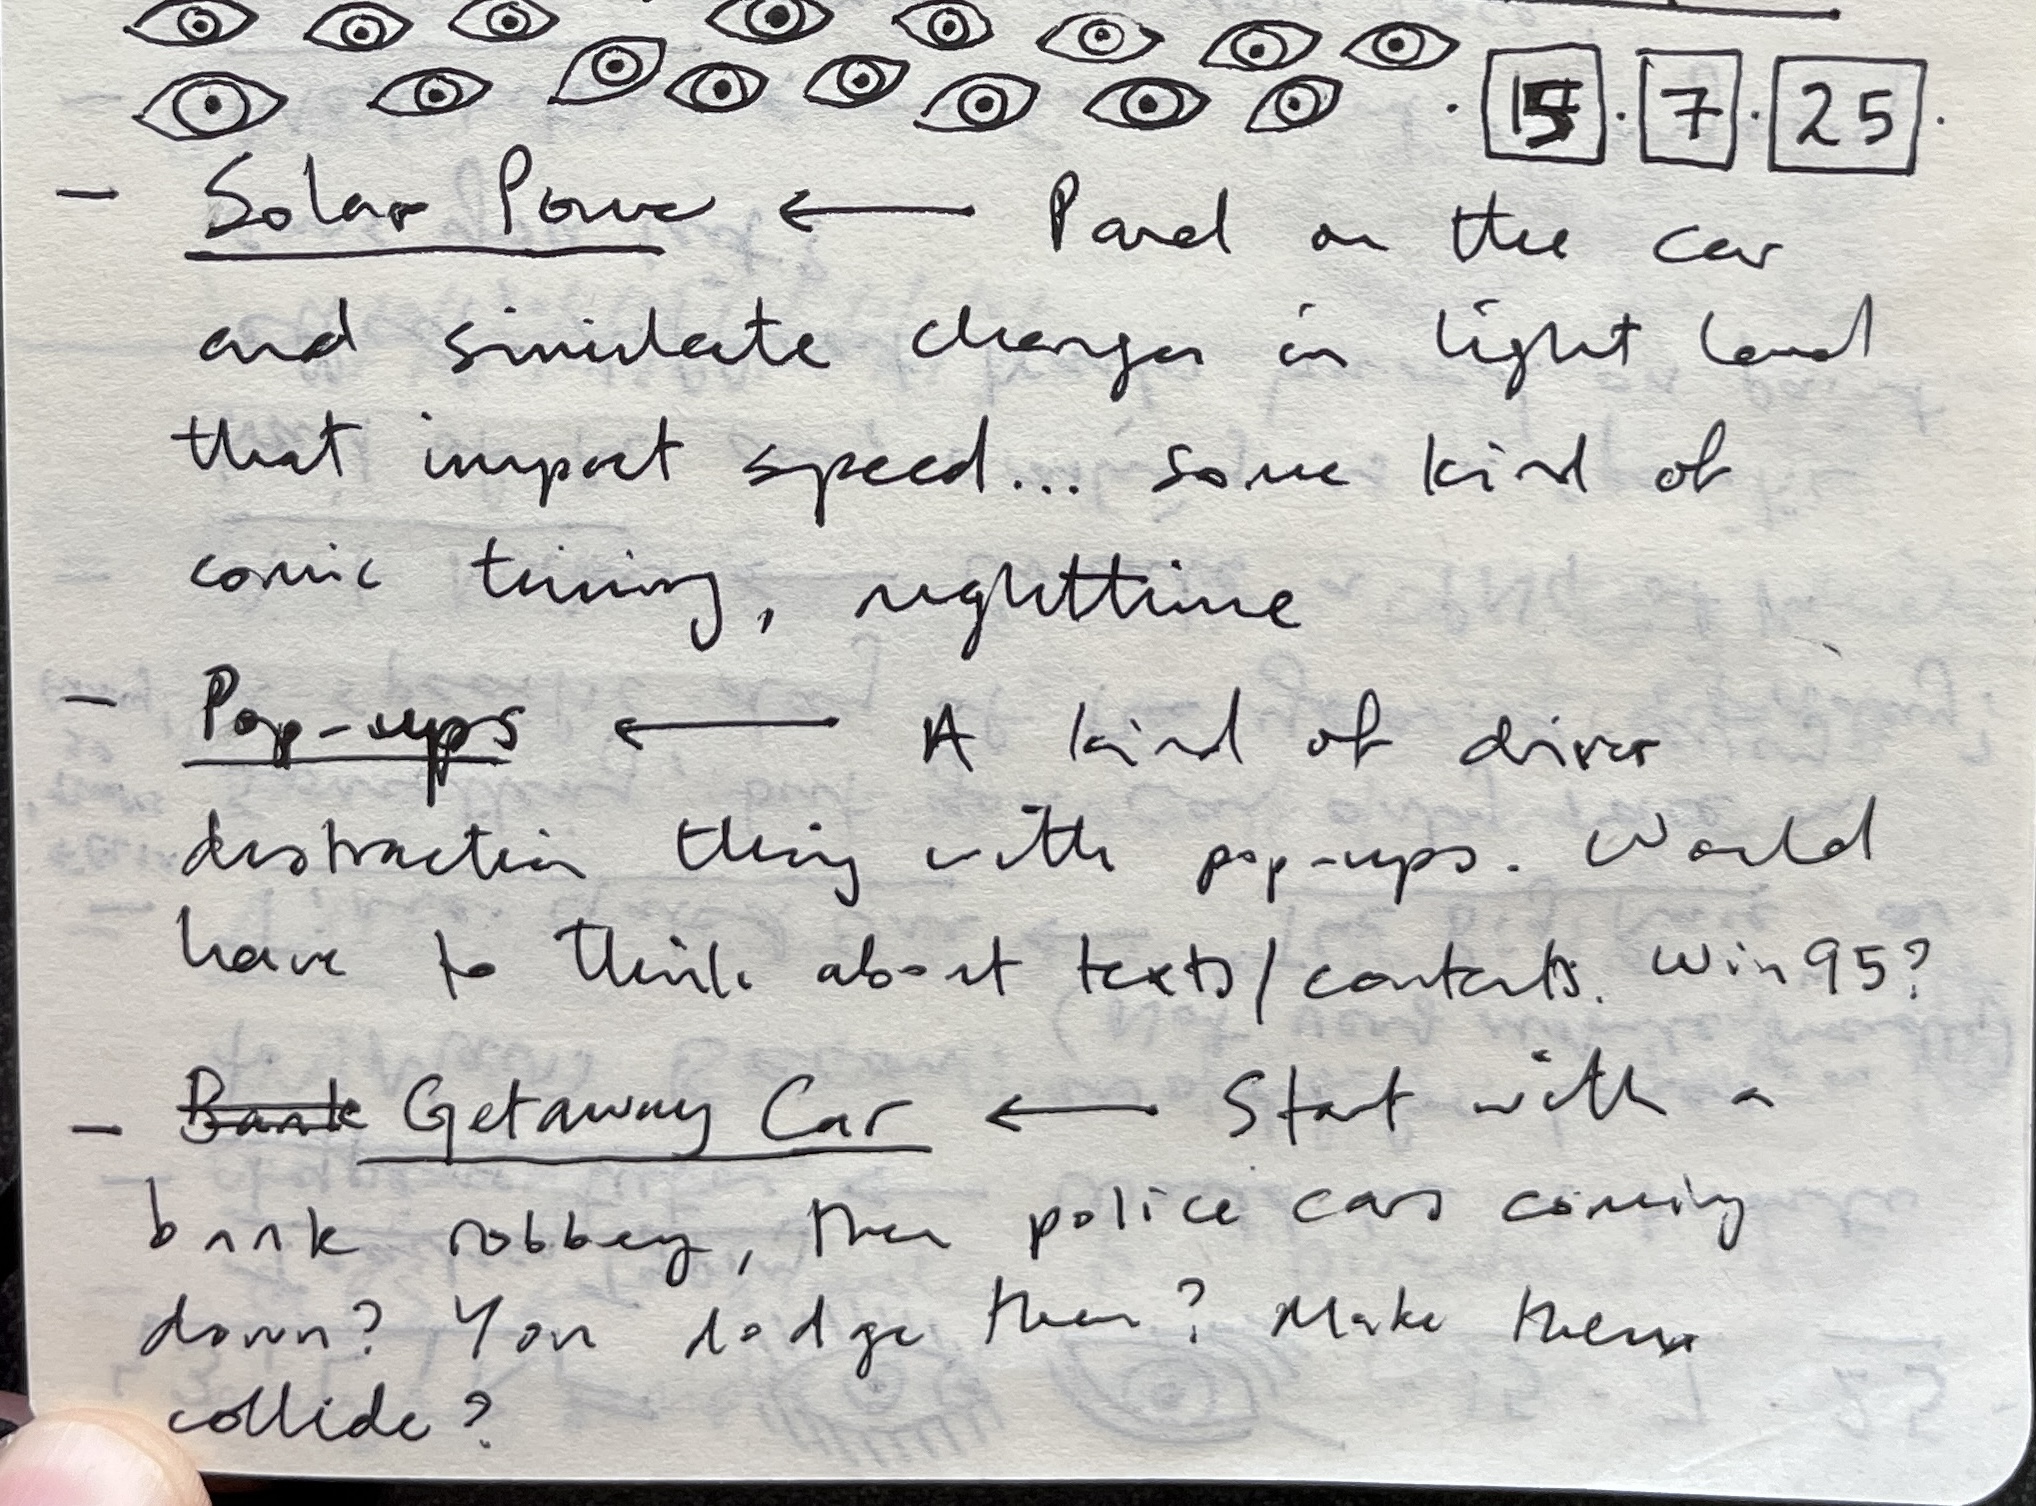 . 15 . 7 . 25 .
- Solar Power ← Panel on the car
and simulate changes in light level
that impact speed... some kind of
comic timing, nighttime
- Pop-ups ← A kind of driver
distraction thing with pop-ups. Would
have to think about texts/contents. Win 95?
- Bank Getaway Car ← Start with a
bank robbery, then police cars coming
down? You dodge them? Make them
collide?